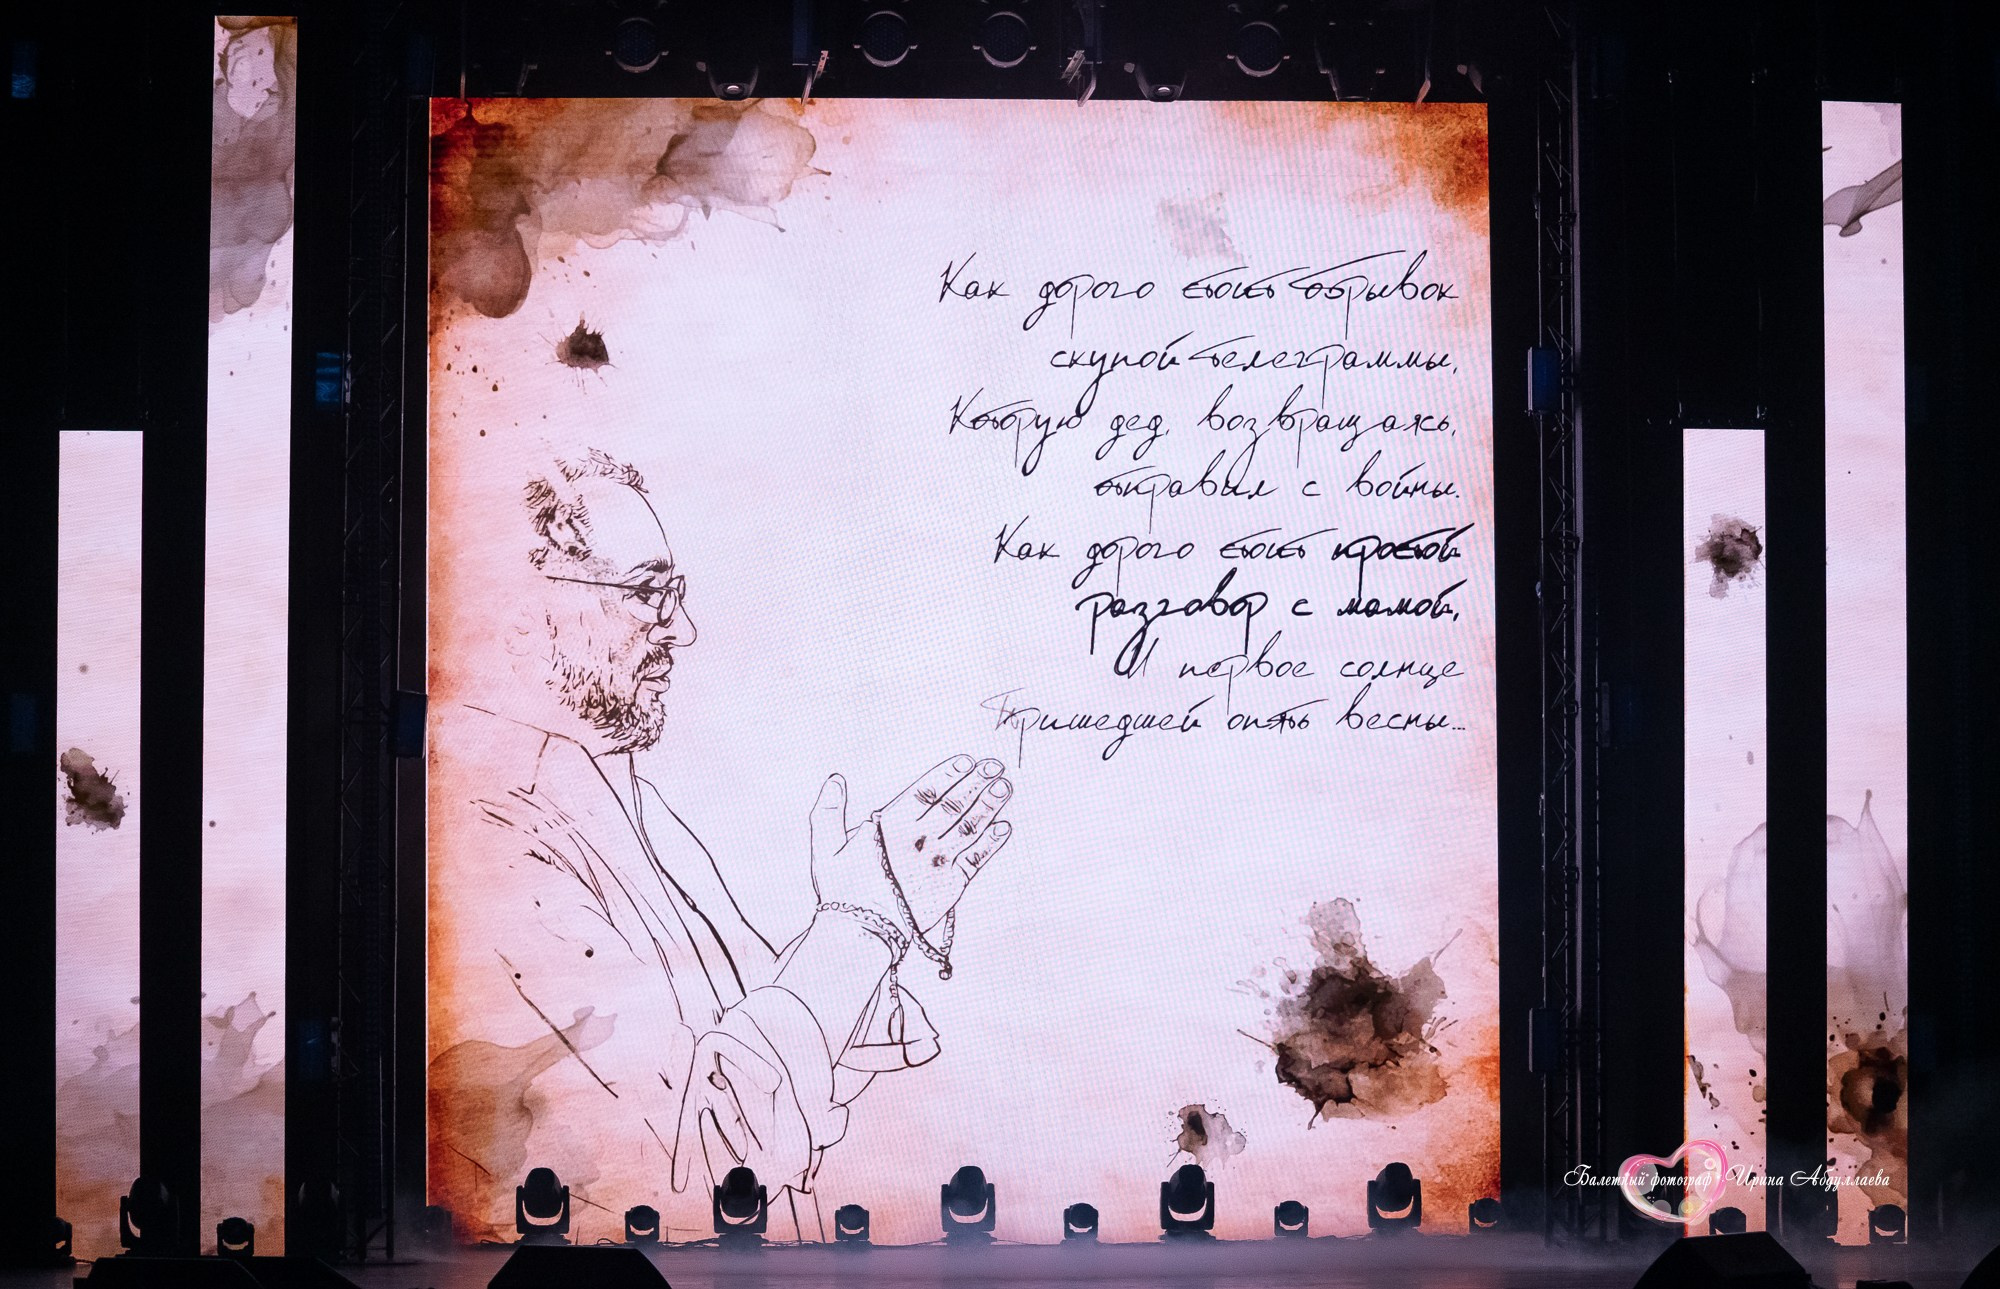 Как дорого стоит обрывок
скупой телеграммы,
Которую дед, возвращаясь,
отправил с войны.
Как дорого стоит простой
разговор с мамой,
И первое солнце
Пришедшей опять весны...
Балетный фотограф Ирина Абдуллаева